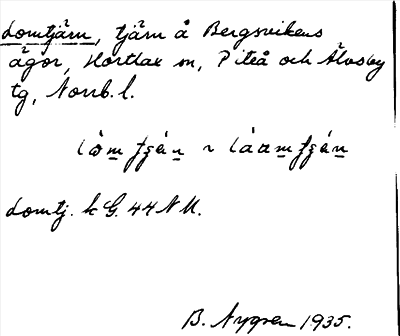 Lomtjärn, tjärn å Bergsvikens
ägor, Hortlax sn, Piteå och Älvsby
tg, Norrb. l.
Lomtj. k G. 44 NV.
B. Nygren 1935.